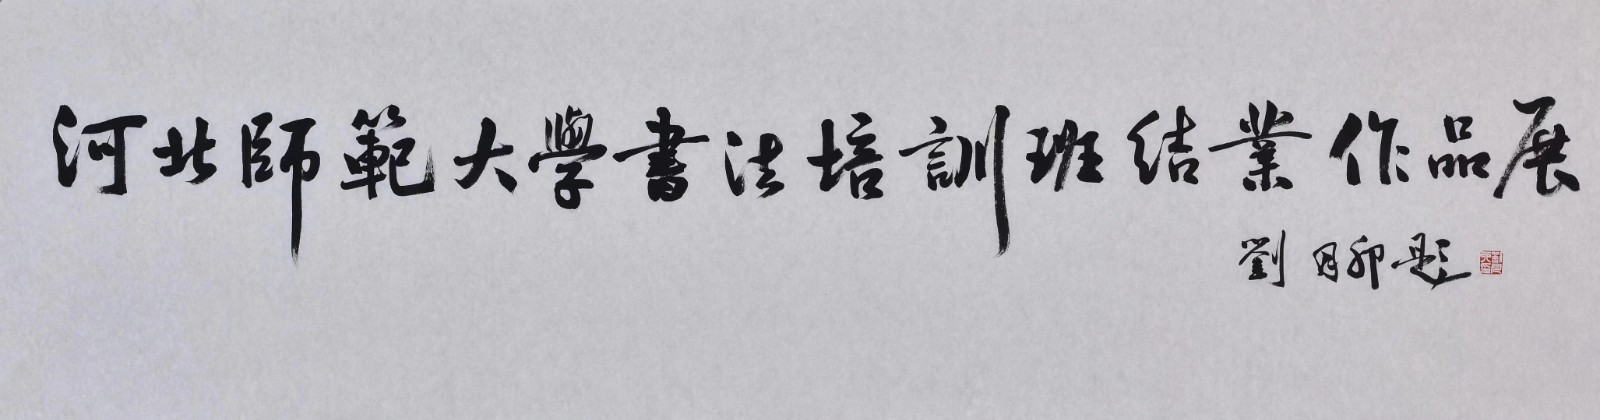 河北師範大學書法培訓班結業作品展
劉月卯題